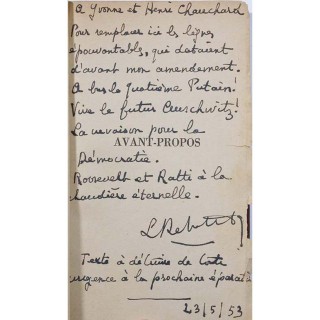 A Yvonne et Henri Chauchard
Pour remplacer ici les lignes
épouvantables, qui dataient
d'avant mon amendement.
A bas le quatrième Putain!
Vive le futur Auschwitz!
La nevaison pour la
AVANT-PROPOS
Démocratie.
Roosevelt et Ratti à la
chaudière éternelle.
Texte à détruire de toute
urgence à la prochaine
23/5/53